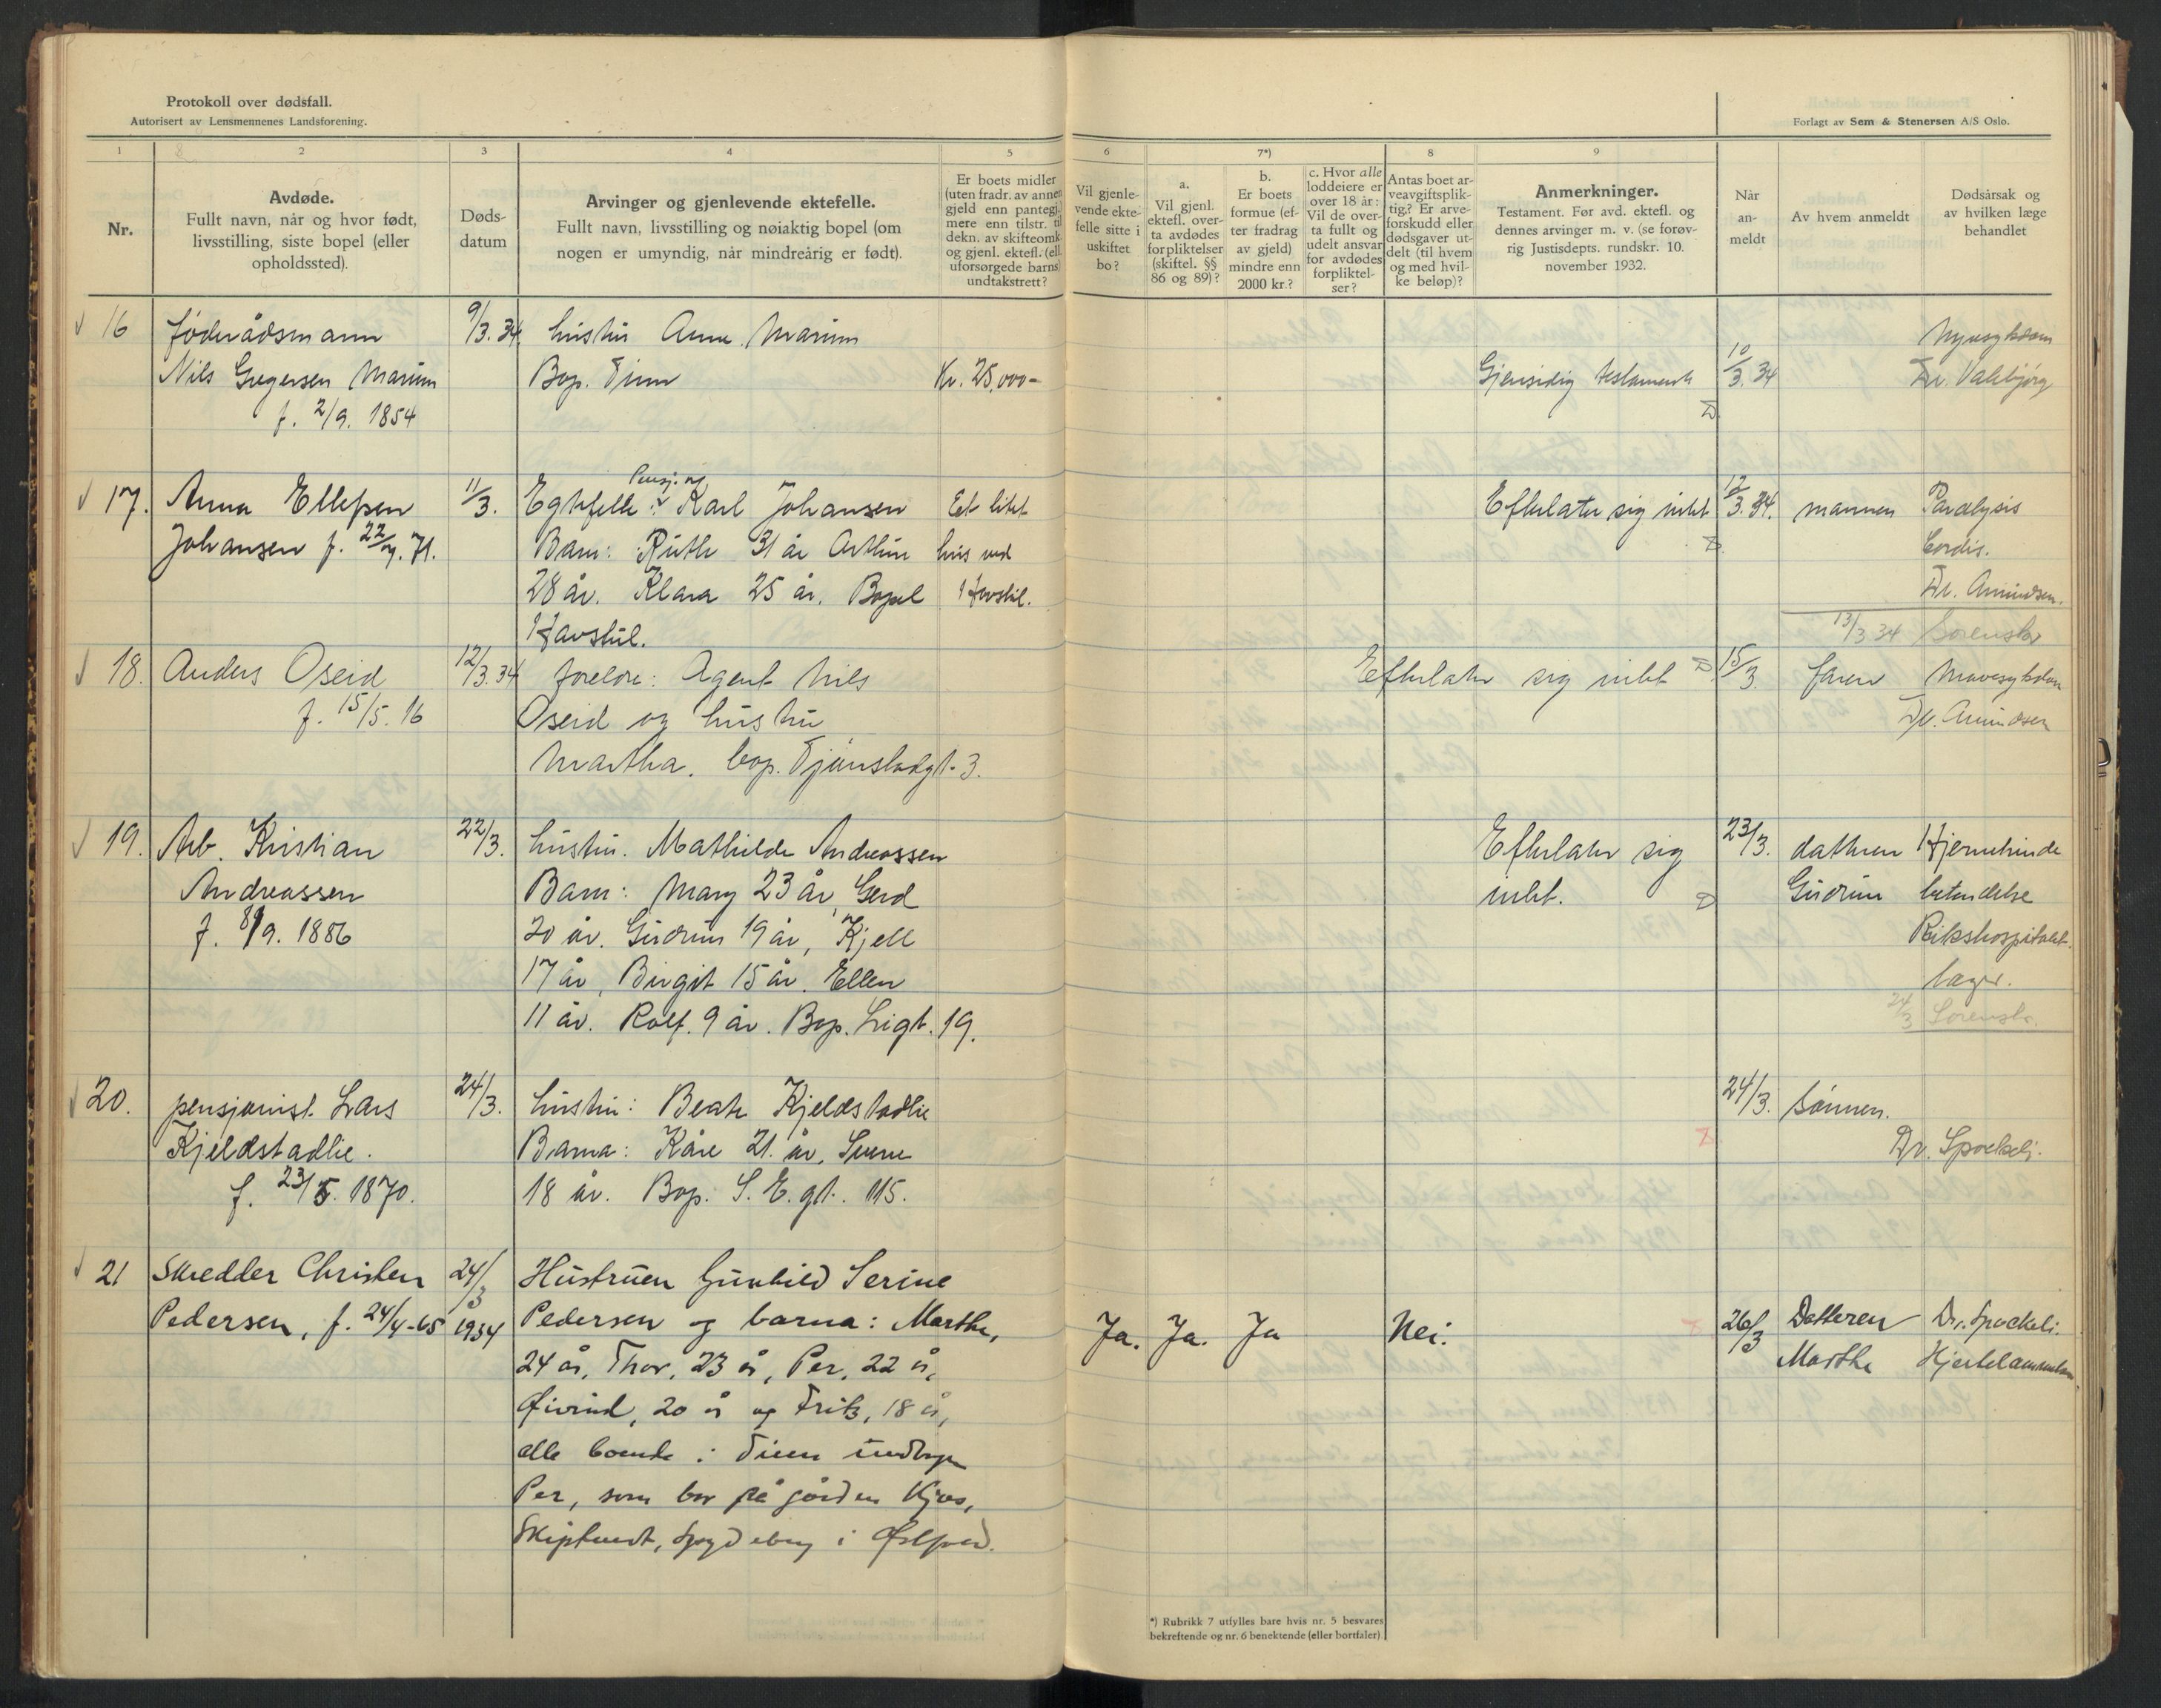 Protokoll over dødsfall.
Autorisert av Lensmennenes Landsforening.
Forlagt av Sem & Stenersen A/S Oslo.
1
2
3
4
5
6
7*)
8
9
Nr.
Avdøde.
Fullt navn, når og hvor født,
livsstilling, siste bopel (eller
opholdssted).
Døds-
datum
Arvinger og gjenlevende ektefelle.
Fullt navn, livsstilling og nøiaktig bopel (om
nogen er umyndig, når mindreårig er født).
Er boets midler
(uten fradr. av annen
gjeld enn pantegj.)
mere enn tilstr. til
dekn. av skifteomk.
og gjenl. ektefl. (ell.
uforsørgede barns)
undtakstrett?
Vil gjenle-
vende ekte-
felle sitte i
uskiftet
bo?
a.
Vil gjenl.
ektefl. over-
ta avdødes
forpliktelser
(skiftel. §§
86 og 89)?
b.
Er boets
formue (ef-
ter fradrag
av gjeld)
mindre enn
2000 kr.?
c. Hvor alle
loddeiere er
over 18 år:
Vil de over-
ta fullt og
udelt ansvar
for avdødes
forpliktel-
ser?
Antas boet ar-
veavgiftsplik-
tig? Er arve-
forskudd eller
dødsgaver ut-
delt (til hvem
og med hvil-
ke beløp)?
Anmerkninger.
Testament. Før avd. ektefl. og
dennes arvinger m. v. (se forøv-
rig Justisdepts. rundskr. 10.
november 1932.
Når
an-
meldt
Av hvem anmeldt
Dødsårsak og
av hvilken læge
behandlet
16 føderådsmann 9/3.34 hustru Anna Marium Nyresykdom
Nils Gregersen Marium Bop. Tinn Kr. 25,000- Gjensidig testament 10/3.34 Dr. Valebjørg
f. 2/9. 1854
Pensj. og
17. Anna Ellefsen 11/3. Egtefelle: Karl Johansen Et litet Efterlater sig intet 12/3.34. mannen Paralysis
Johansen f. 22/7.71. Barn: Ruth 31 år Arthur hus ved Cordis.
28 år. Klara 25 år. Bopel Havstul. Dr. Amundsen.
Havstul. 13/3 34 Sorenskr
18. Anders Oseid 12/3.34 foreldre: Agent Nils Efterlater sig intet 15/3. faren Mavesykdom
f. 15/5.16 Oseid og hustru Dr. Amundsen
Martha. bop. Tjønstadgt. 3.
19. Arb. Kristian 22/3. hustru. Mathilde Andreassen Efterlater sig 23/3. datteren Hjernehinde
Andreassen Barn: Mary 23 år, Gerd intet. Gudrun betendelse
f. 8/9. 1886 20 år. Gudrun 19 år, Kjell Rikshospitalet.
17 år, Birgit 15 år. Ellen læger.
11 år. Rolf. 9 år. Bop. Ligt. 19. 24/3 Sorenskr.
20. pensjonist Lars 24/3. hustru: Beate Kjeldstadlie 24/3. Sønnen.
Kjeldstadlie. Barna: Kåre 21. år, Sverre Dr. Spockeli.
f. 23/5. 1870. 18 år. Bop. S. E. gt. 115.
21 Skredder Christen 24/3 Hustruen Gunhild Serine
Pedersen, f. 24/4-65 1934 Pedersen og barna: Marthe, Ja. Ja. Ja Nei. 26/3 Datteren Dr. Spockeli.
24 år, Thor, 23 år, Per, 22 år, Marthe Hjertelammelse
Øivind, 20 år og Fritz, 18 år,
alle boende i Tinn undtagen
Per, som bor på gården Kjos,
Skiptvedt, Spydeberg i Østfold.
*) Rubrikk 7 utfylles bare hvis nr. 5 besvares
bekreftende og nr. 6 benektende (eller bortfaler)